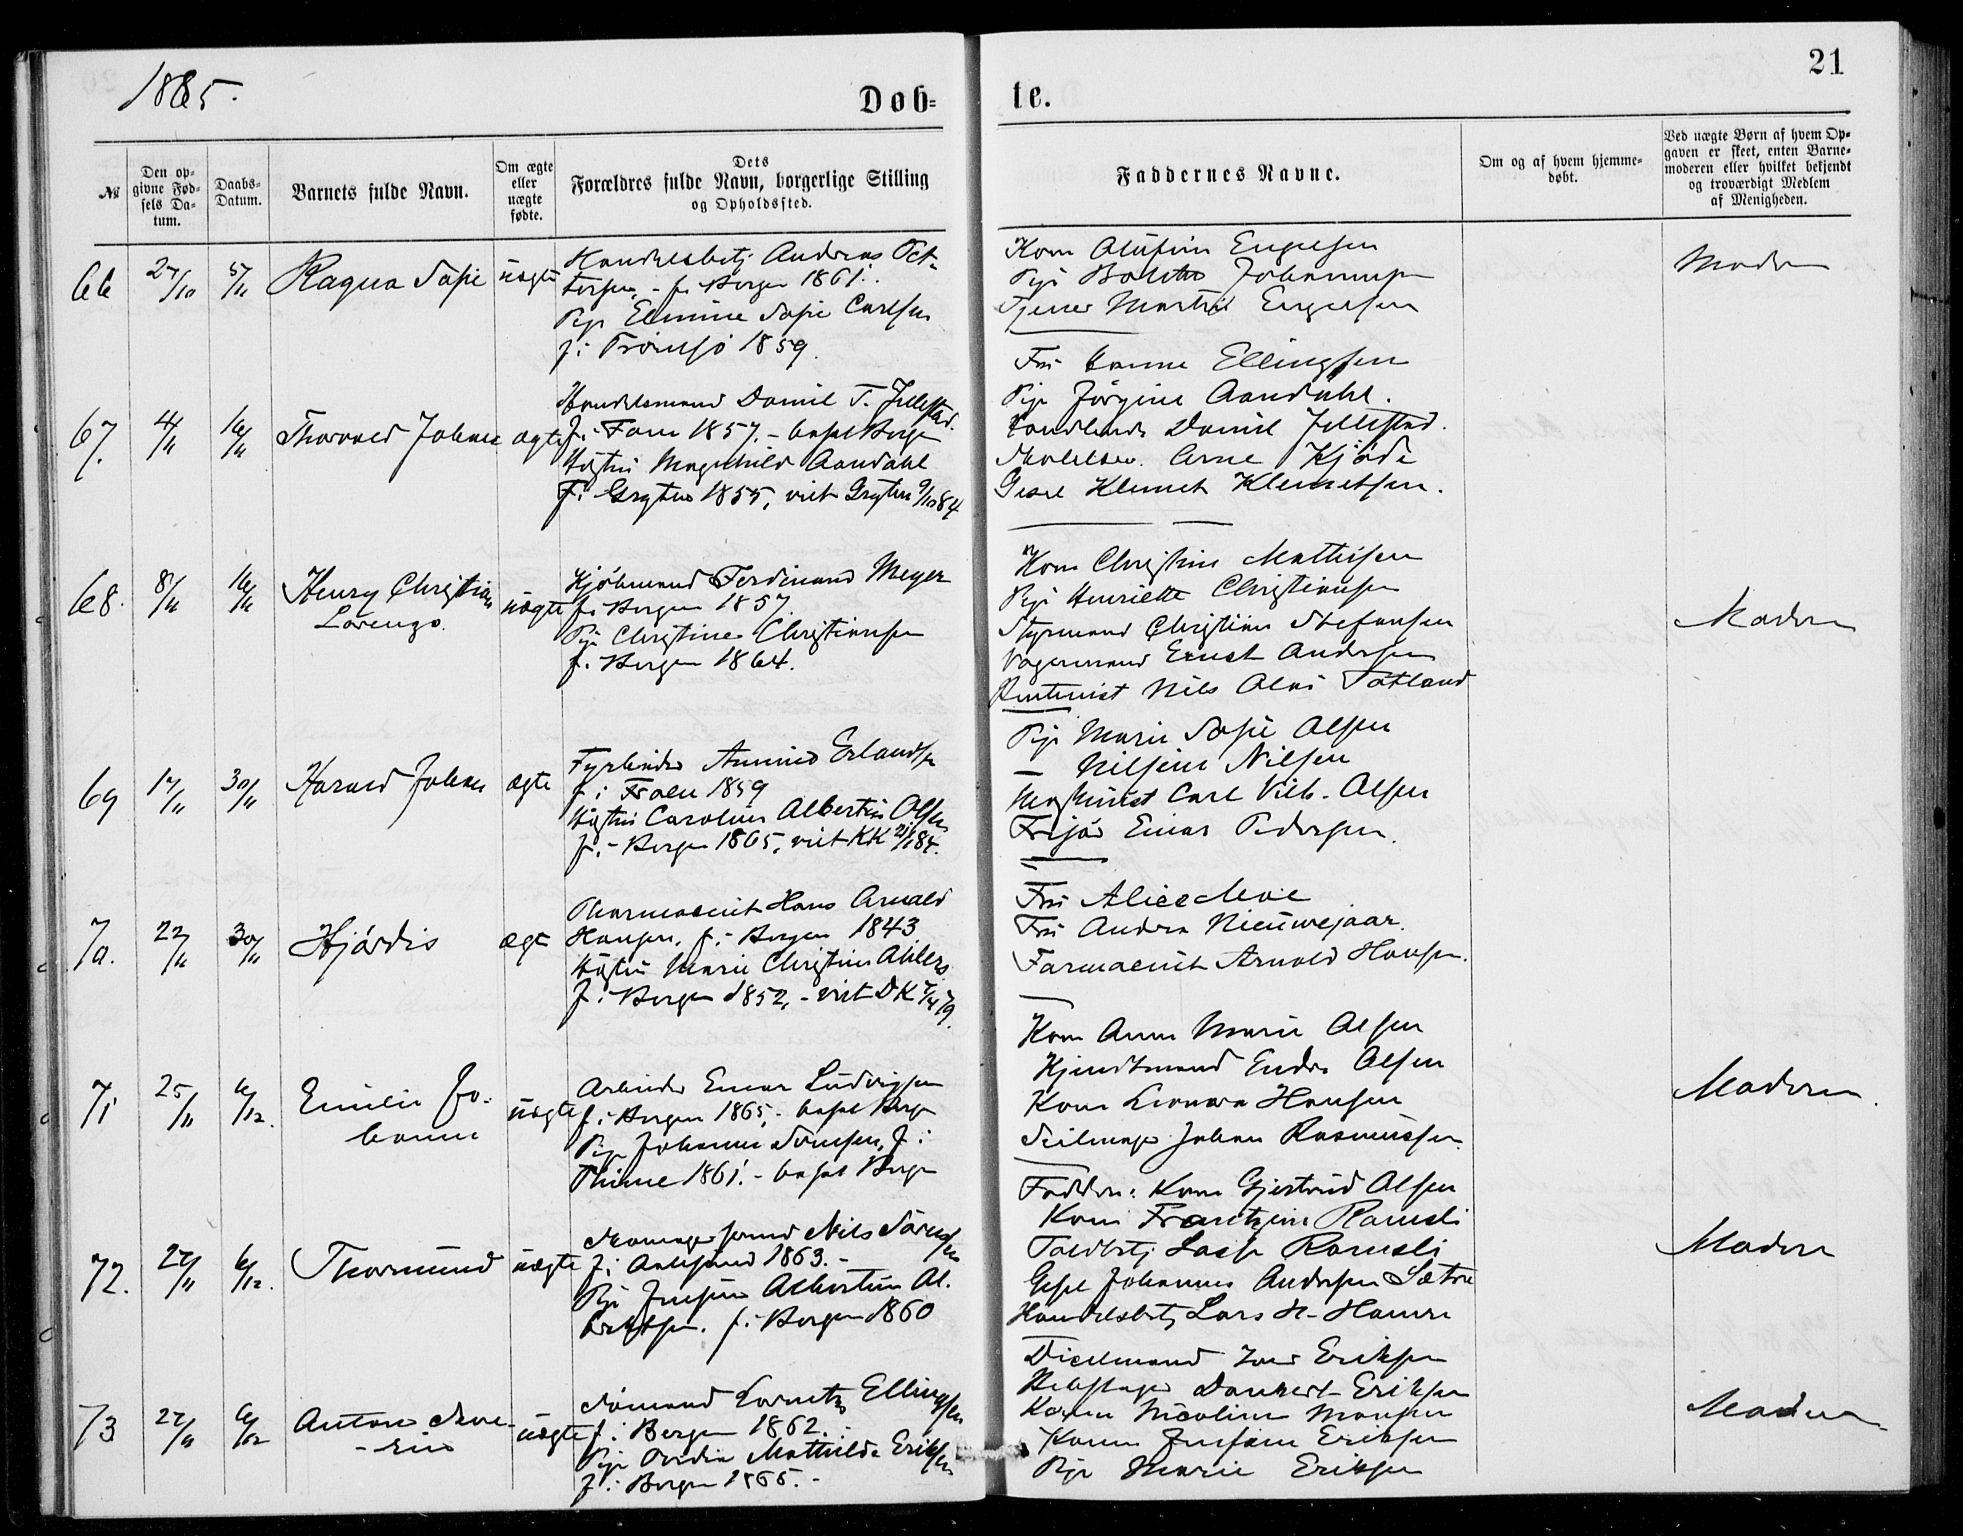 1885.
Døb=
te.
21
№
Den op-
givne Fød-
sels Da-
tum.
Daabs-
Datum.
Barnets fulde Navn.
Om ægte
eller
uægte
fødte.
Dets
Forældres fulde Navn, borgerlige Stilling
og Opholdssted.
Faddernes Navne.
Om og af hvem hjemme-
døbt.
Ved uægte Børn af hvem Op-
gaven er skeet, enten Barne-
moderen eller hvilket bekjendt
og troværdigt Medlem
af Menigheden.
66
27/10
5/11
Ragna Sofie
uægte
Handelsbetj. Andreas
f. Bergen 1861.
Pige Elmine Sofie Carlsen
f. i Tromsø 1859.
Kone Olufine Engelsen
Pige Johannesen
Tjener Martin Engelsen
67.
4/11
16/11
Thorvald Johan
ægte
Handelsmand Daniel T. Jellestad.
f. i Fane 1857. - bosat Bergen
Hustru Magnhild Aandahl
f. i Grytten 1855, viet Grytten 9/10 84
Fru Hanne Ellingsen
Pige Jørgine Aandahl.
Daniel Jellestad.
Arne Kjøde
Gesel Klemet Klemetsen.
68.
8/11
16/11
Henry Christian
Lorenzo.
uægte
Kjøbmand Ferdinand Meyer
f. Bergen 1857.
Pige Christine Christiansen
f. Bergen 1864.
Kone Christine Mathisen
Pige Henriette Christiansen
Styrmand Christian Stefansen
Vognmand Ernst Andersen
Nils Olai Totland
Moderen
69
17/11
30/11
Harald Johan
ægte
Fyrbøder Amund Erlandsen
f. i Froen 1859
Hustru Caroline Albertine Olsen
f. i Bergen 1865, viet KK 21/ 84.
Pige Marie Sofie Olsen
— Nilsine Nilsen
Maskinist Carl Vilh. Olsen
Frisør Einar Pedersen.
70.
22/11
30/11
Hjørdis
ægte
Pharmaceut Hans Arnold
Hansen. f. i Bergen 1843
Hustru Marie Christine Ahlers
f. i Bergen 1852, - viet DK 7/4 79.
Fru Alice Moe
Fru Andrea Nieuwejaar.
Farmaceut Arnold Hansen.
71
25/11
6/12.
Emilie Jo-
hanne
uægte
Arbeider Einar Ludvigsen
f. i Bergen 1865, - bosat Bergen
Pige Johanne f. i
1861. - bosat Bergen
Kone Anna Marie Olsen
Endre Olsen
Kone Leonora Hansen
Seilmager Johan Rasmussen.
Moderen.
72.
27/11
6/12.
Thormund
uægte
Nils Sørensen
f. i Aalesund 1863. -
Pige Josefine Albertine Al-
brigtsen. f. i Bergen 1860
Faddere: Kone Gjertrud Olsen
Kone Frantzine Ramsli
Toldbetj Lasse Ramsli
Gesel Johannes Andersen Sætre
Handelsbetj Lars H. Hamre
Moderen
73
27/11
6/12
Anton
uægte
Sømand Lorentz Ellingsen
f. i Bergen 1862. -
Pige Mathilde Eriksen
f. i Bergen 1865. -
Iver Eriksen
Rebslager Dankert Eriksen
Konen Nicoline Monsen
Konen Josefine Eriksen
Pige Marie Eriksen
Moderen